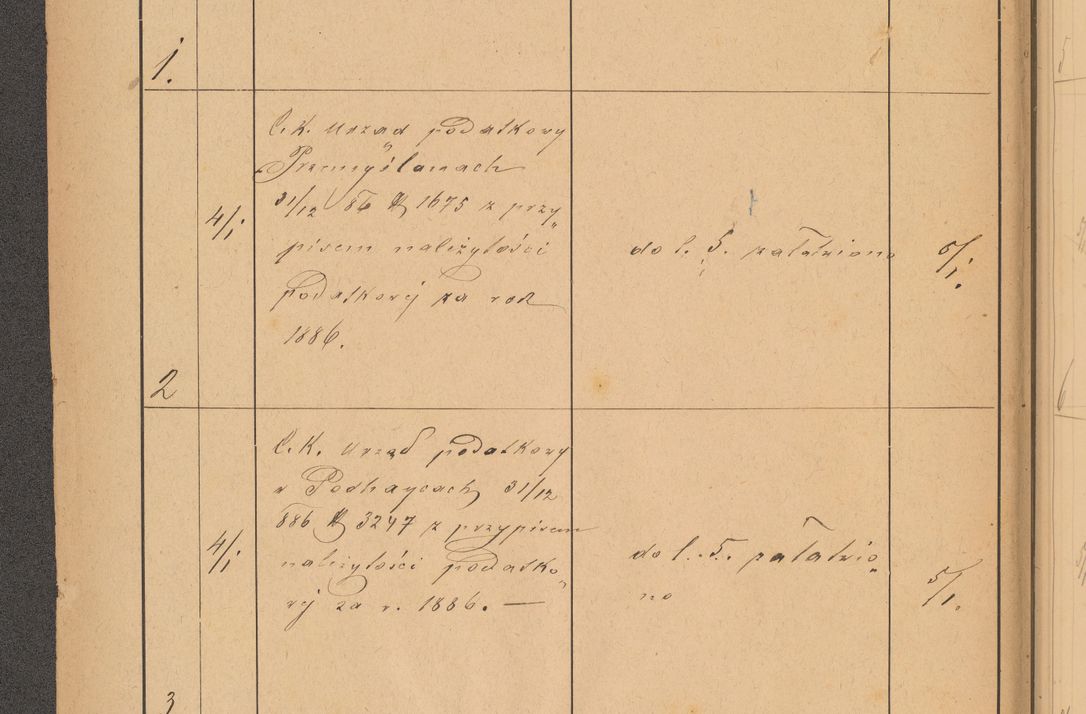 1.
4/1
C. K. Urząd podatkowy
Przemyślanach
31/12 86 N 1675 z przy„
pisem należytości
podatkowej za rok
1886.
do l. 5. załatwiono
5/1.
2
4/1
C. K. Urząd podatkowy
w Podhaycach 31/12
886 N 3247 z przypisem
należytości podatko„
wej za r. 1886. —
do l. 5. załatwio„
no
5/1.
3
5
6